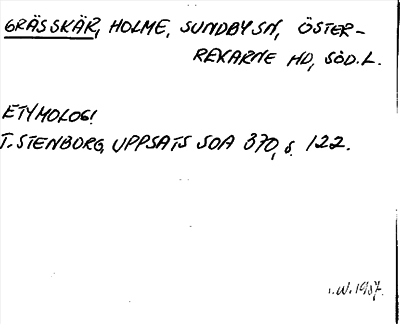 GRÄSSKÄR, HOLME, SUNDBY SN, ÖSTER-
REKARNE HD, SÖD.L.
ETYMOLOGI
T. STENBORG, UPPSATS SOA 870, s. 122.
1987.